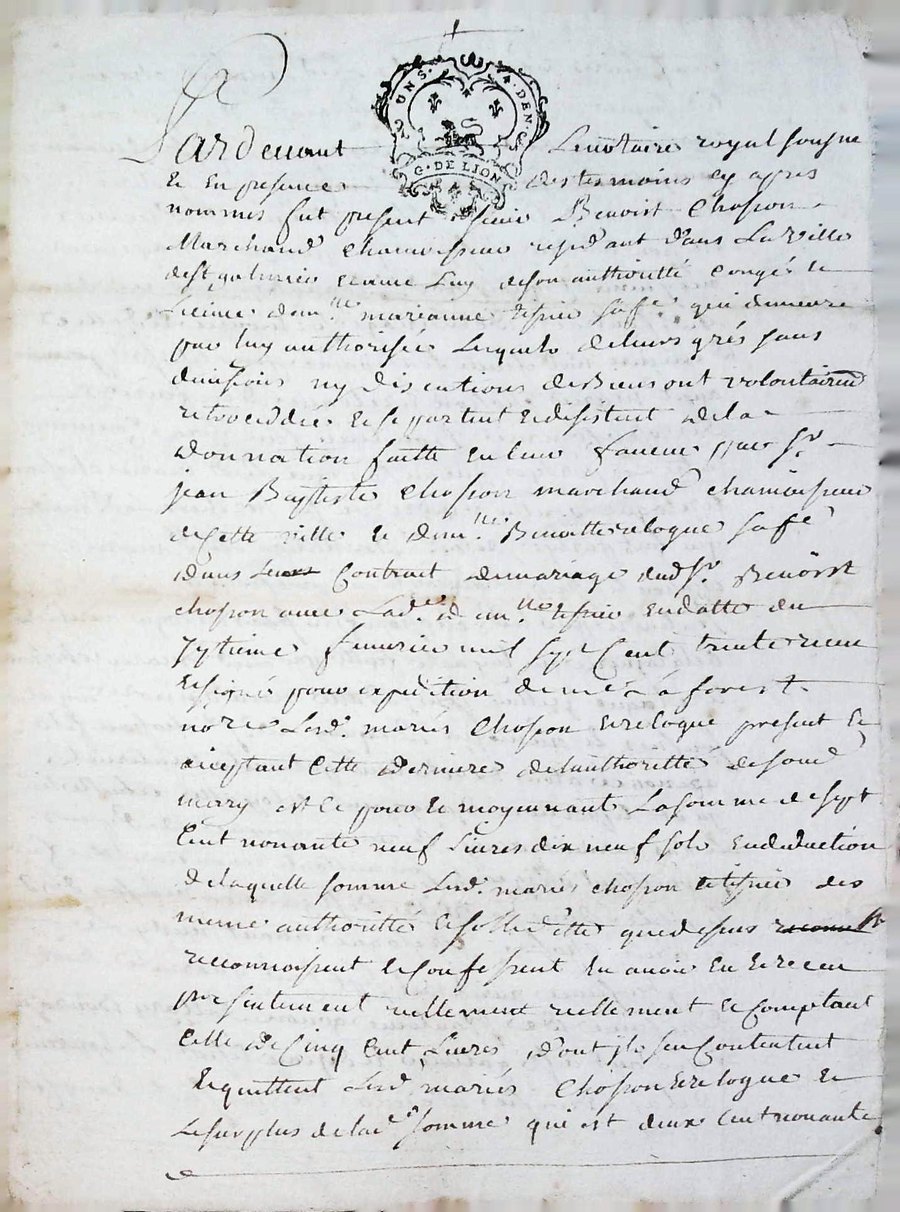 UNS. 4. DEN.
G. DE LION
Pardevant Le notaire royal soussigne
et En presence des temoins cy apres
nommes fut present sieur Benoist Chosson
Marchand Chamoisseur residant dans La Ville
de St galmier et avec Luy de son authoritté congés et
Licence dem.lle marianne tissier sa fe. qui demeure
par luy authorisée Lesquels de leurs grés sans
divisions ny discutions de Biens ont volontairemt
retroceddée et se partent et desistent de la
donnation faitte en leur faveur par Sr.
jean Baptiste Chosson marchand chamoisseur
de Cette ville et dem.lle Benoitte reloque sa fe
dans Leurs Contrat de mariage dudSr. Benoist
chosson avec Lade. dem.lle tissier en datte du
septieme fevrier mil sept Cent trente neuf
et signé pour expedition forest
nore Lesd. mariés Chosson et reloque present et
acceptant Cette derniere de l'authoritté de son d
marry et Ce pour et moyennant La somme de sept
Cent nonante neuf Livres dix neuf sols en deduction
de laquelle somme Lesd. mariés chosson et tissier des
meme authoritté et sollidditté que dessus
reconnoissent et Confessent En avoir Eu et receu
presentement reellement reellement et Comptant
Celle de Cinq Cent Livres dont ils se Contentent
et quittent Lesd mariés Chosson et reloque et
Le surplus de lade somme qui est deux Cent nonante